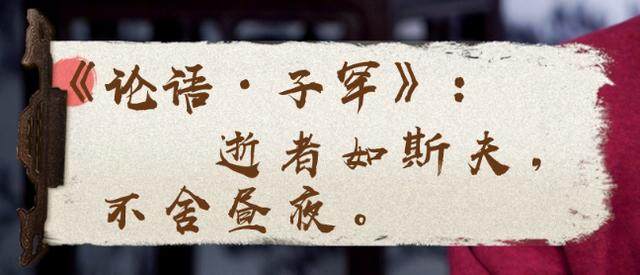 《论语·子罕》：
逝者如斯夫，
不舍昼夜。